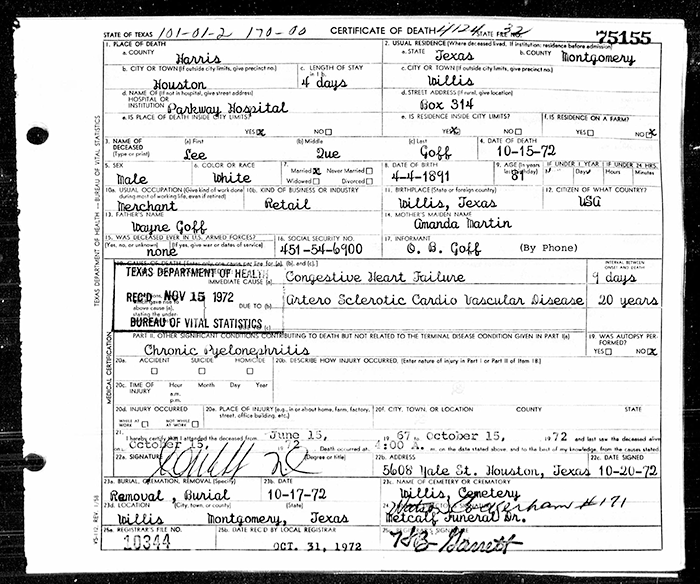 STATE OF TEXAS 101-01-2 170-00 CERTIFICATE OF DEATH 4124 STATE FILE NO. 32 75155
1. PLACE OF DEATH 2. USUAL RESIDENCE (Where deceased lived. If institution: residence before admission)
a. COUNTY Harris a. STATE Texas b. COUNTY Montgomery
b. CITY OR TOWN (If outside city limits, give precinct no.) Houston c. LENGTH OF STAY in 1 b. 4 days c. CITY OR TOWN (If outside city limits, give precinct no.) Willis
d. NAME OF (If not in hospital, give street address) HOSPITAL OR INSTITUTION Parkway Hospital d. STREET ADDRESS (If rural, give location) Box 314
e. IS PLACE OF DEATH INSIDE CITY LIMITS? YES X NO e. IS RESIDENCE INSIDE CITY LIMITS? YES X NO f. IS RESIDENCE ON A FARM? YES NO X
3. NAME OF DECEASED (Type or print) (a) First Lee (b) Middle Que (c) Last Goff 4. DATE OF DEATH 10-15-72
5. SEX Male 6. COLOR OR RACE White 7. Married X Never Married Widowed Divorced 8. DATE OF BIRTH 4-4-1891 9. AGE (In years last birthday) 81 IF UNDER 1 YEAR Days IF UNDER 24 HRS. Hours Min.
10a. USUAL OCCUPATION (Give kind of work done during most of working life, even if retired) Merchant 10b. KIND OF BUSINESS OR INDUSTRY Retail 11. BIRTHPLACE (State or foreign country) Willis, Texas 12. CITIZEN OF WHAT COUNTRY? USA
13. FATHER'S NAME Wayne Goff 14. MOTHER'S MAIDEN NAME Amanda Martin
15. WAS DECEASED EVER IN U.S. ARMED FORCES? (Yes, no, or unknown) (If yes, give war or dates of service) none 16. SOCIAL SECURITY NO. 451-54-6900 17. INFORMANT O. B. Goff (By Phone)
18. CAUSE OF DEATH [Enter only one cause per line for (a), (b), and (c).] INTERVAL BETWEEN ONSET AND DEATH
TEXAS DEPARTMENT OF HEALTH IMMEDIATE CAUSE (a) Congestive Heart Failure 9 days
REC'D NOV 15 1972 DUE TO (b) Artero Sclerotic Cardio Vascular Disease 20 years
BUREAU OF VITAL STATISTICS
PART II. OTHER SIGNIFICANT CONDITIONS CONTRIBUTING TO DEATH BUT NOT RELATED TO THE TERMINAL DISEASE CONDITION GIVEN IN PART I(a) 19. WAS AUTOPSY PERFORMED?
Chronic Pyelonephritis YES NO X
20a. ACCIDENT SUICIDE HOMICIDE 20b. DESCRIBE HOW INJURY OCCURRED. (Enter nature of injury in Part I or Part II of Item 18.)
20c. TIME OF INJURY Hour a.m. p.m. Month Day Year
20d. INJURY OCCURRED WHILE AT WORK NOT WHILE AT WORK 20e. PLACE OF INJURY (e.g., in or about home, farm, factory, street, office building, etc.) 20f. CITY, TOWN, OR LOCATION COUNTY STATE
21. I hereby certify that I attended the deceased from June 15, 1967 to October 15, 1972 and last saw the deceased alive
October 15, 72 Death occurred at 4:00 A m. on the date stated above, and to the best of my knowledge, from the causes stated
22a. SIGNATURE (Degree or title) 22b. ADDRESS 5608 Yale St. Houston, Texas 22c. DATE SIGNED 10-20-72
23a. BURIAL, CREMATION, REMOVAL (Specify) Removal, Burial 23b. DATE 10-17-72 23c. NAME OF CEMETERY OR CREMATORY Willis, Cemetery
23d. LOCATION (City, town, or county) (State) Willis Montgomery, Texas 24. #171 Metcalf Funeral Dr.
25a. REGISTRAR'S FILE NO. 10344 25b. DATE REC'D BY LOCAL REGISTRAR OCT. 31, 1972 25c. REGISTRAR'S SIGNATURE Garrett
TEXAS DEPARTMENT OF HEALTH — BUREAU OF VITAL STATISTICS
MEDICAL CERTIFICATION
VS-112 REV. 1/58